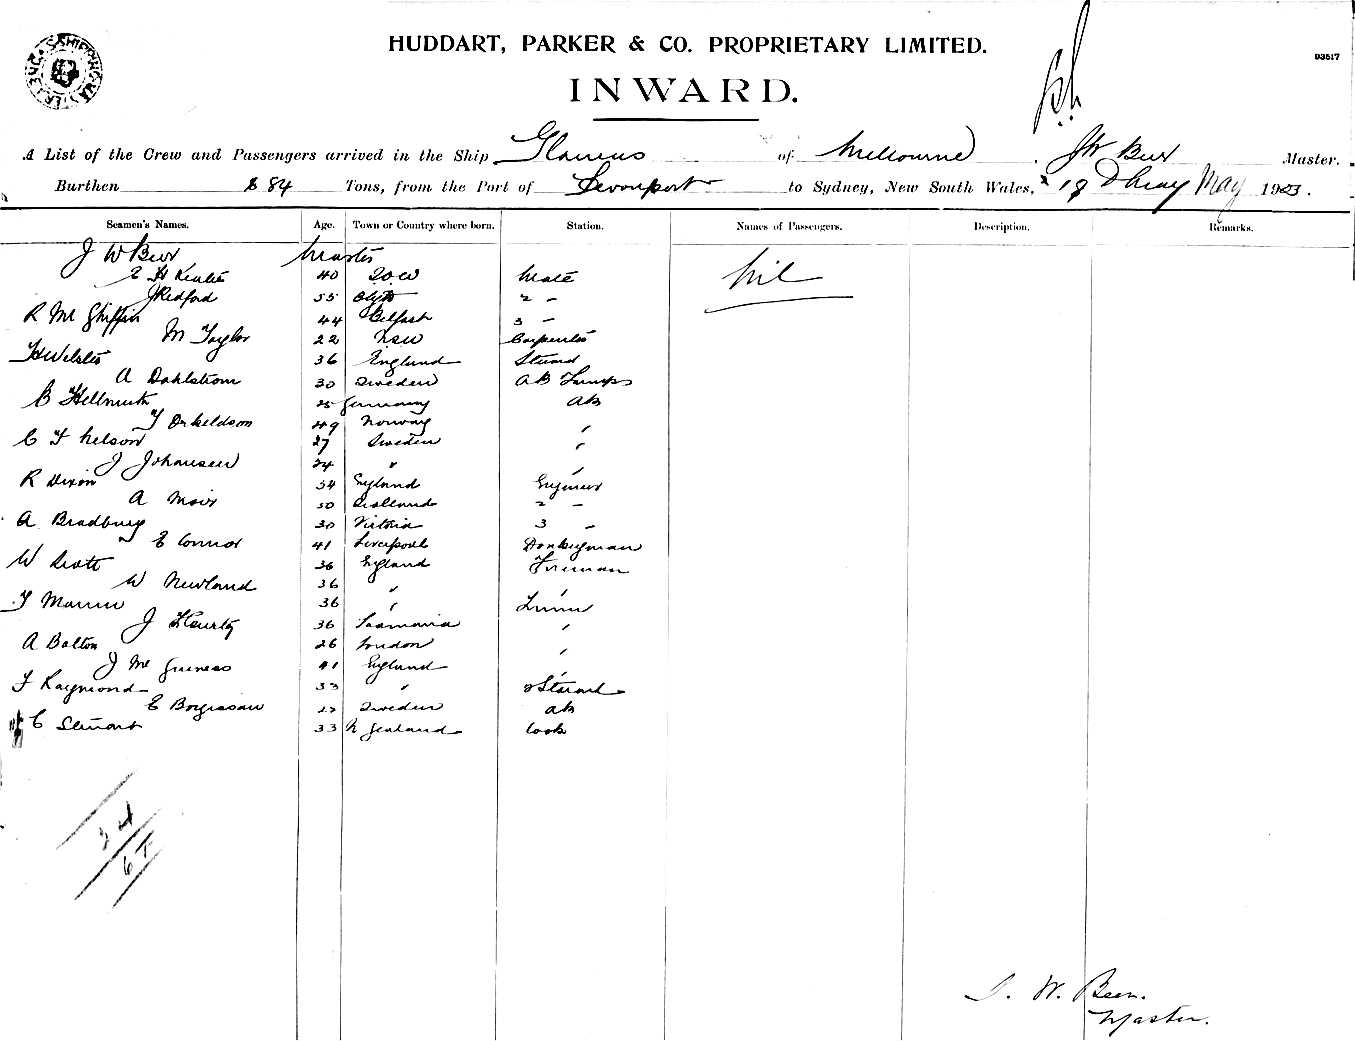 HUDDART, PARKER & CO. PROPRIETARY LIMITED.
D3517
INWARD.
A List of the Crew and Passengers arrived in the Ship Glaucus of Melbourne, J W Beer Master.
Burthen 884 Tons, from the Port of Devonport to Sydney, New South Wales, 18 May 1903.
Seamen's Names. Age. Town or Country where born. Station. Names of Passengers. Description. Remarks.
J W Beer Master
E H 40 Mate Nil
J Redford 55 Blyth 2 -
R Mc Giffin 44 Belfast 3 -
M Taylor 22 NSW Carpenter
H Webster 36 England Steward
A Dahlstrom 30 Sweden AB Lamps
B Hellmuth 25 Germany AB
T 49 Norway "
C F Nelson 27 Sweden "
J Johansen 24 " "
R Dixon 54 England Engineer
A Moir 50 Scotland 2 -
A Bradbury 30 Victoria 3 -
E Connor 41 Liverpool Donkeyman
W Scott 36 England Fireman
W Newland 36 " "
T 36 " Trimmer
J 36 Tasmania "
A Bolton 26 London "
J Mc Guiness 41 England "
F Raymond 33 " 2 Steward
E Sweden AB
C Stewart 33 N Zealand Cook
24
J. W. Beer.
Master.